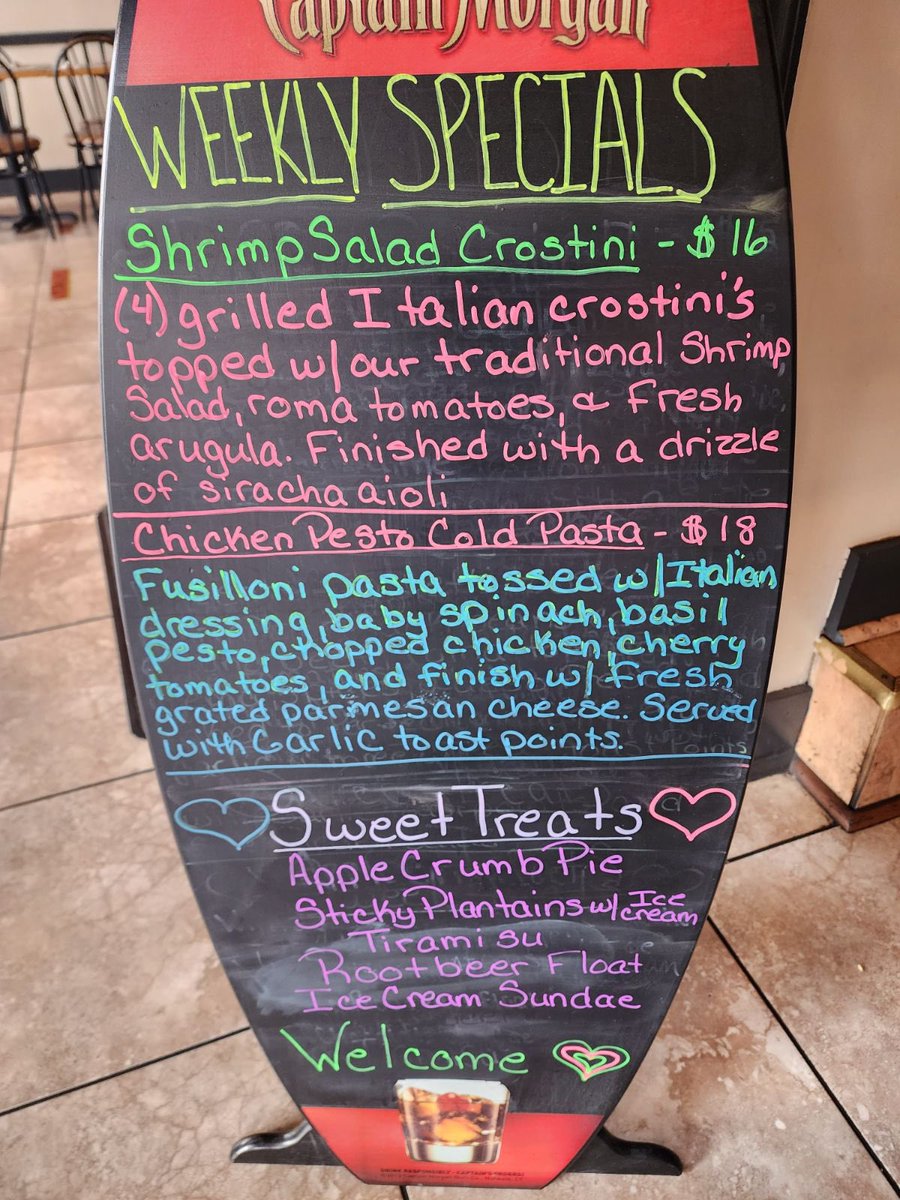 Captain Morgan
WEEKLY SPECIALS
Shrimp Salad Crostini - $16
(4) grilled Italian crostini's
topped w/our traditional Shrimp
Salad, roma tomatoes, & Fresh
arugula. Finished with a drizzle
of siracha aioli
Chicken Pesto Cold Pasta - $18
Fusilloni pasta tossed w/Italian
dressing, baby spinach, basil
pesto, chopped chicken, cherry
tomatoes, and finish w/ fresh
grated parmesan cheese. Served
with Garlic toast points.
Sweet Treats
Apple Crumb Pie
Sticky Plantains w/ Ice cream
Tiramisu
Rootbeer Float
Ice Cream Sundae
Welcome